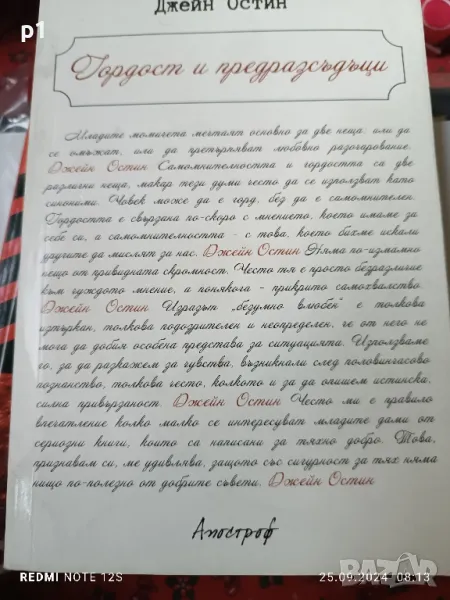 Джейн Остин
p1
Гордост и предразсъдъци
Младите момичета мечтаят основно за две неща: или да
се омъжат, или да претърпяват любовно разочарование.
Джейн Остин Самомнителността и гордостта са две
различни неща, макар тези думи често да се използват като
синоними. Човек може да е горд, без да е самомнителен.
Гордостта е свързана по-скоро с мнението, което имаме за
себе си, а самомнителността - с това, което бихме искали
другите да мислят за нас. Джейн Остин Няма по-измамно
нещо от привидната скромност. Често тя е просто безразличие
към чуждото мнение, а понякога - прикрито самохвалство.
Джейн Остин Изразът „безумно влюбен“ е толкова
изтъркан, толкова подозрителен и неопределен, че от него не
мога да добия особена представа за ситуацията. Използваме
го, за да разкажем за чувства, възникнали след половинчасово
познанство, толкова често, колкото и за да опишем истинска,
силна привързаност. Джейн Остин Често ми е правило
впечатление колко малко се интересуват младите дами от
сериозни книги, които са написани за тяхно добро. Това,
признавам си, ме удивлява, защото със сигурност за тях няма
нищо по-полезно от добрите съвети. Джейн Остин
Апостроф
BAZAR
REDMI NOTE 12S
25.09.2024 08:13